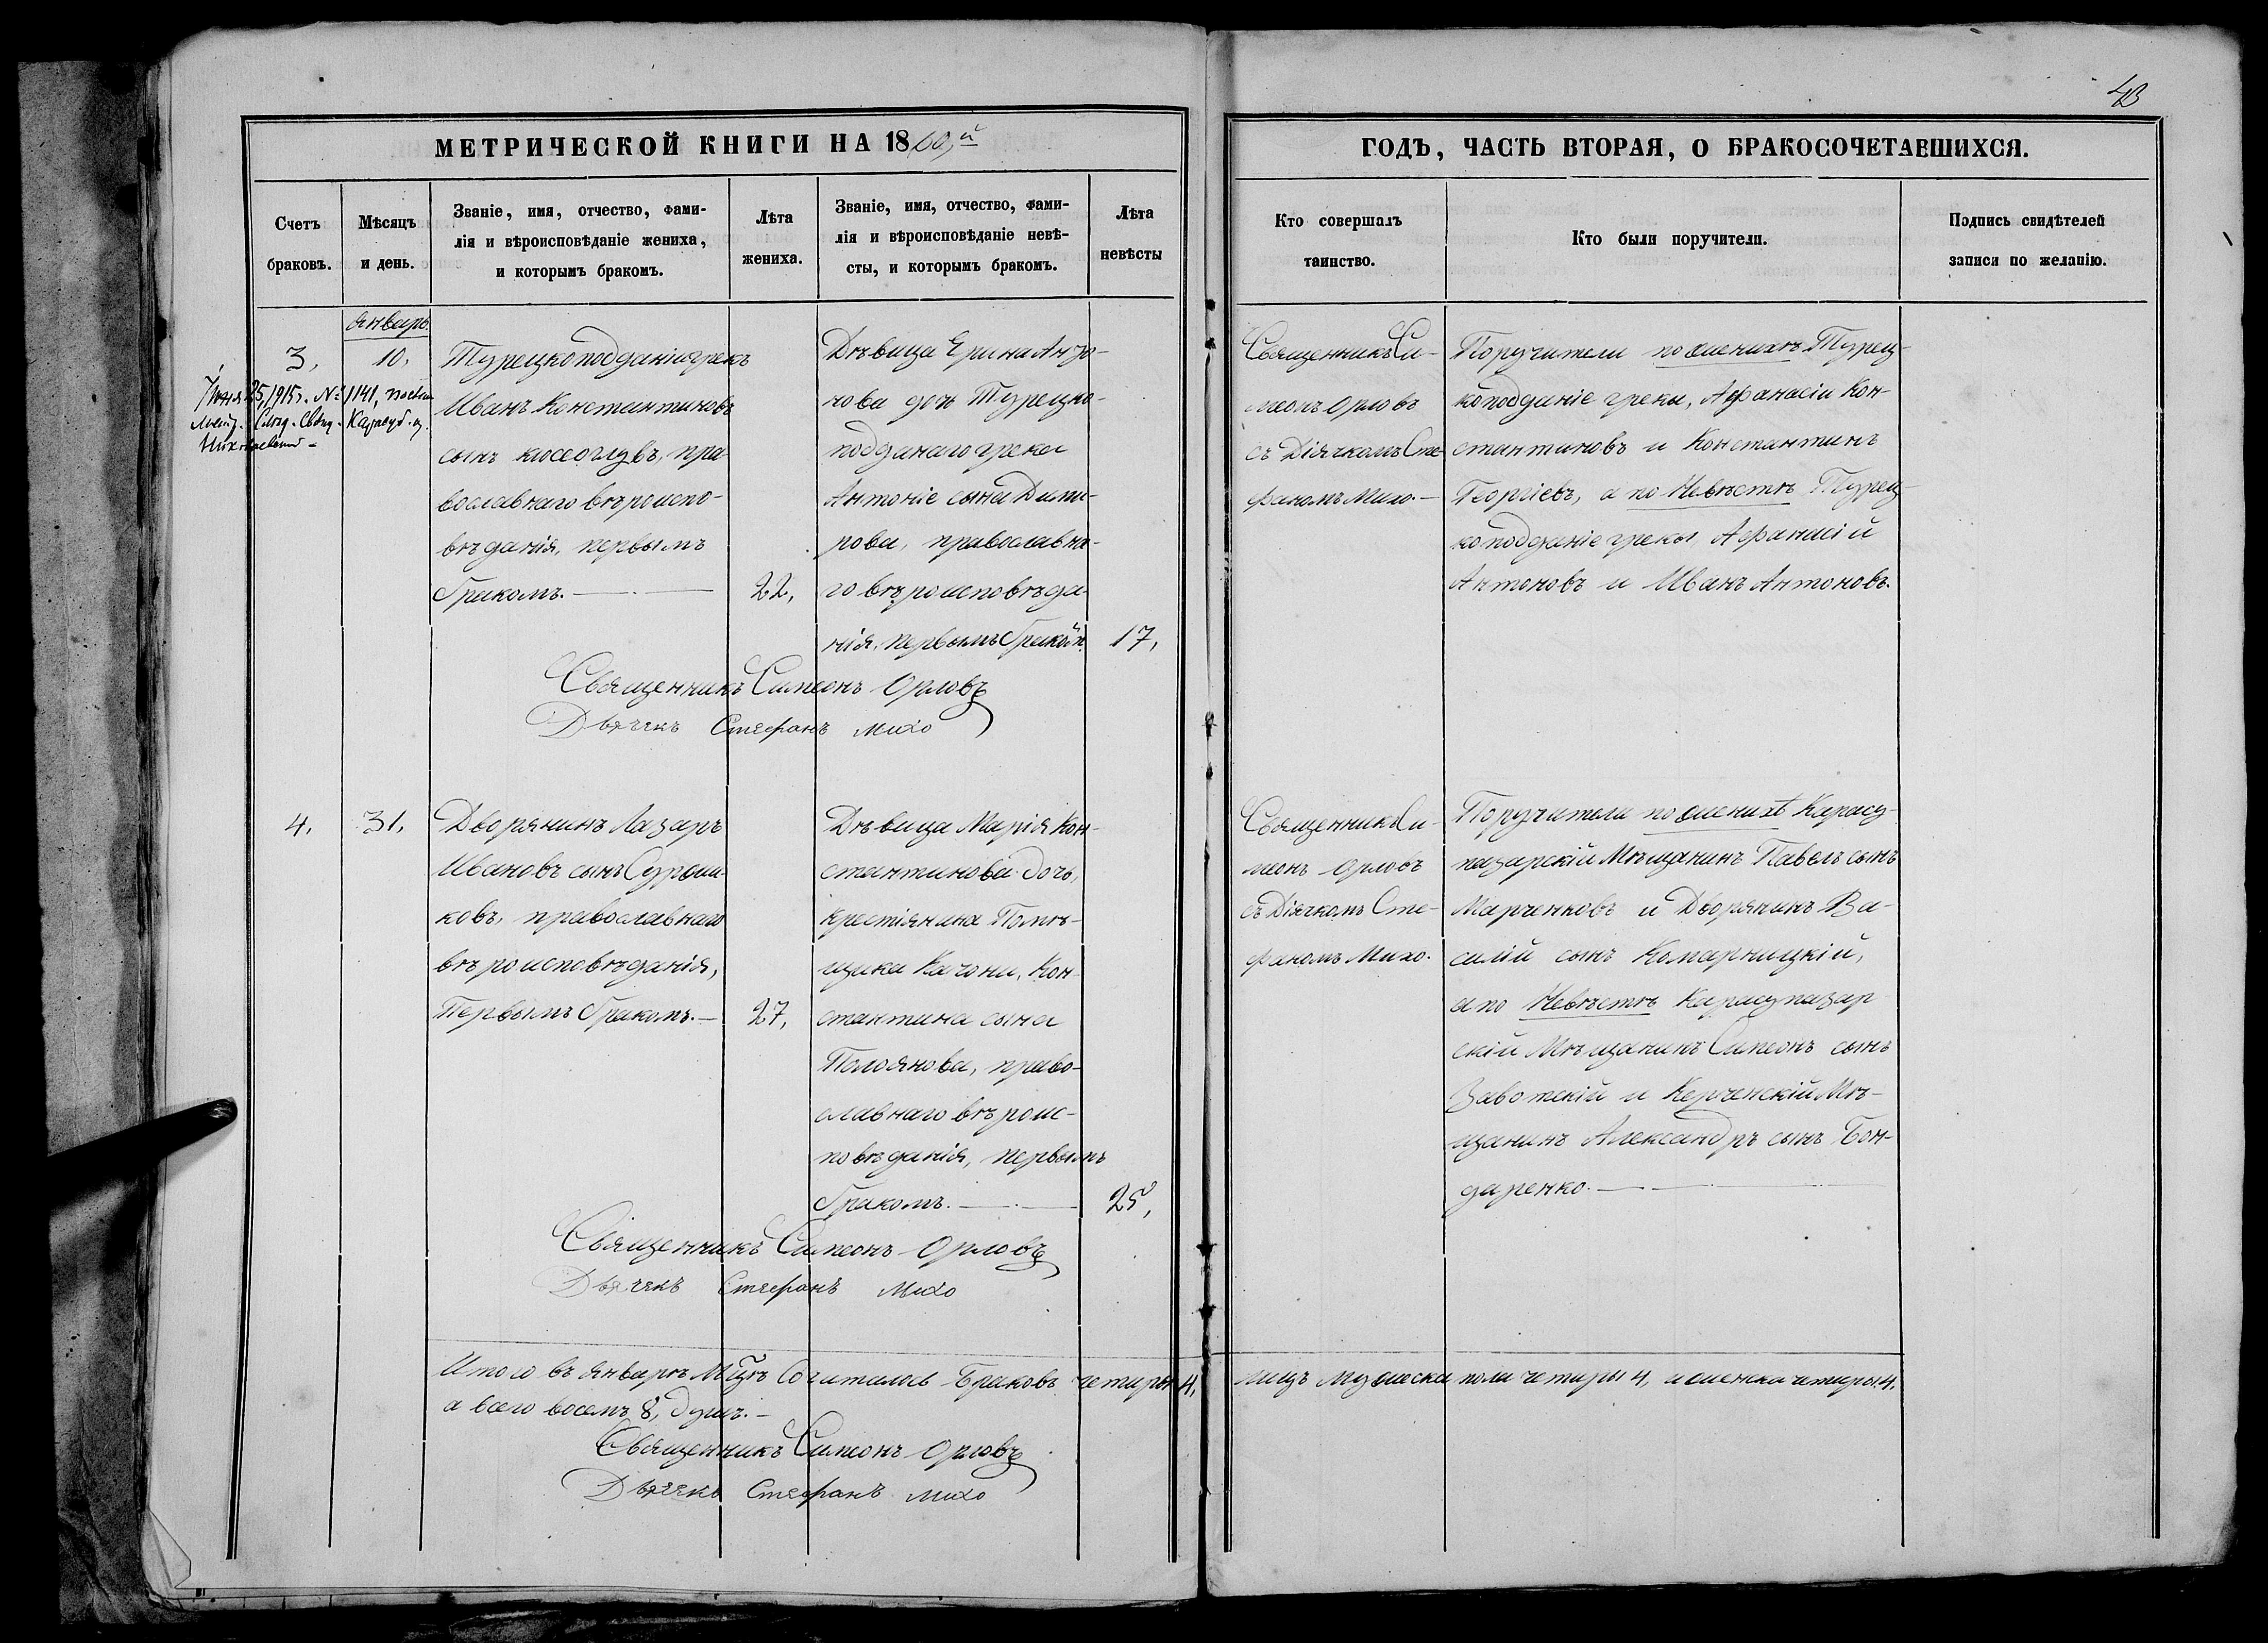 43
МЕТРИЧЕСКОЙ КНИГИ НА 1860,й
ГОДЪ, ЧАСТЬ ВТОРАЯ, О БРАКОСОЧЕТАВШИХСЯ.
Счетъ
браковъ.
Мѣсяцъ
и день.
Званіе, имя, отчество, фами-
лія и вѣроисповѣданіе жениха,
и которымъ бракомъ.
Лѣта
жениха.
Званіе, имя, отчество, фами-
лія и вѣроисповѣданіе невѣ-
сты, и которымъ бракомъ.
Лѣта
невѣсты
Кто совершалъ
таинство.
Кто были поручители.
Подпись свидѣтелей
записи по желанію.
Январь.
3,
10,
Іюня 25, 1915 г. № 1141,
Турецкоподданій грекъ
Иванъ Константиновъ
сынъ кюсеоглувъ, пра
вославнаго вѣроиспо-
вѣданія, первымъ
бракомъ.
22,
Дѣвица Ерина Анто-
нова доч Турецко-
подданаго грека
Антоніе сына Дими-
рова, православна-
го вѣроисповѣда-
нія, первымъ бракомъ
17,
Священникъ Си-
меонъ Орловъ
съ Діячкомъ Сте
фаномъ Михо.
Поручители по женихѣ Турец-
коподданіе греки, Афанасіи Кон-
стантиновъ и Константинъ
Георгіевъ, а по Невѣстѣ Турец-
коподданіе греки Афанасій
Антоновъ и Иванъ Антоновъ.
Священникъ Симеонъ Орловъ
Дьячекъ Стефанъ Михо
4,
31,
Дворянинъ Лазарь
Ивановъ сынъ Суржи-
ковъ, православнаго
вѣроисповѣданія,
Первымъ бракомъ.
27,
Дѣвица Марія Кон-
стантинова дочь,
крестіянина Помѣ-
щика Качони, Кон-
стантина сына
Полоянова, право-
славнаго вѣроис-
повѣданія, первымъ
бракомъ.
25,
Священникъ Си-
меонъ Орловъ
съ Діячкомъ Сте-
фаномъ Михо.
Поручители по женихѣ Карасу-
пазарскій Мѣщанинъ Павелъ сынъ
Марченковъ и Дворянинъ Ва-
силій сынъ Комарницкій,
а по Невѣстѣ Карасупазар
скій Мѣщанинъ Симеонъ сынъ
Заботскій и Керченскій Мѣ-
щанинъ Александръ сынъ Бон-
даренко.
Священникъ Симеонъ Орловъ
Дьячекъ Стефанъ Михо
Итого въ Январѣ Мцѣ Считалось Браковъ четиры 4, лицъ мужеска пола четиры 4, а женска четиры 4,
а всего восемъ 8, душъ.
Священникъ Симеонъ Орловъ
Дьячекъ Стефанъ Михо